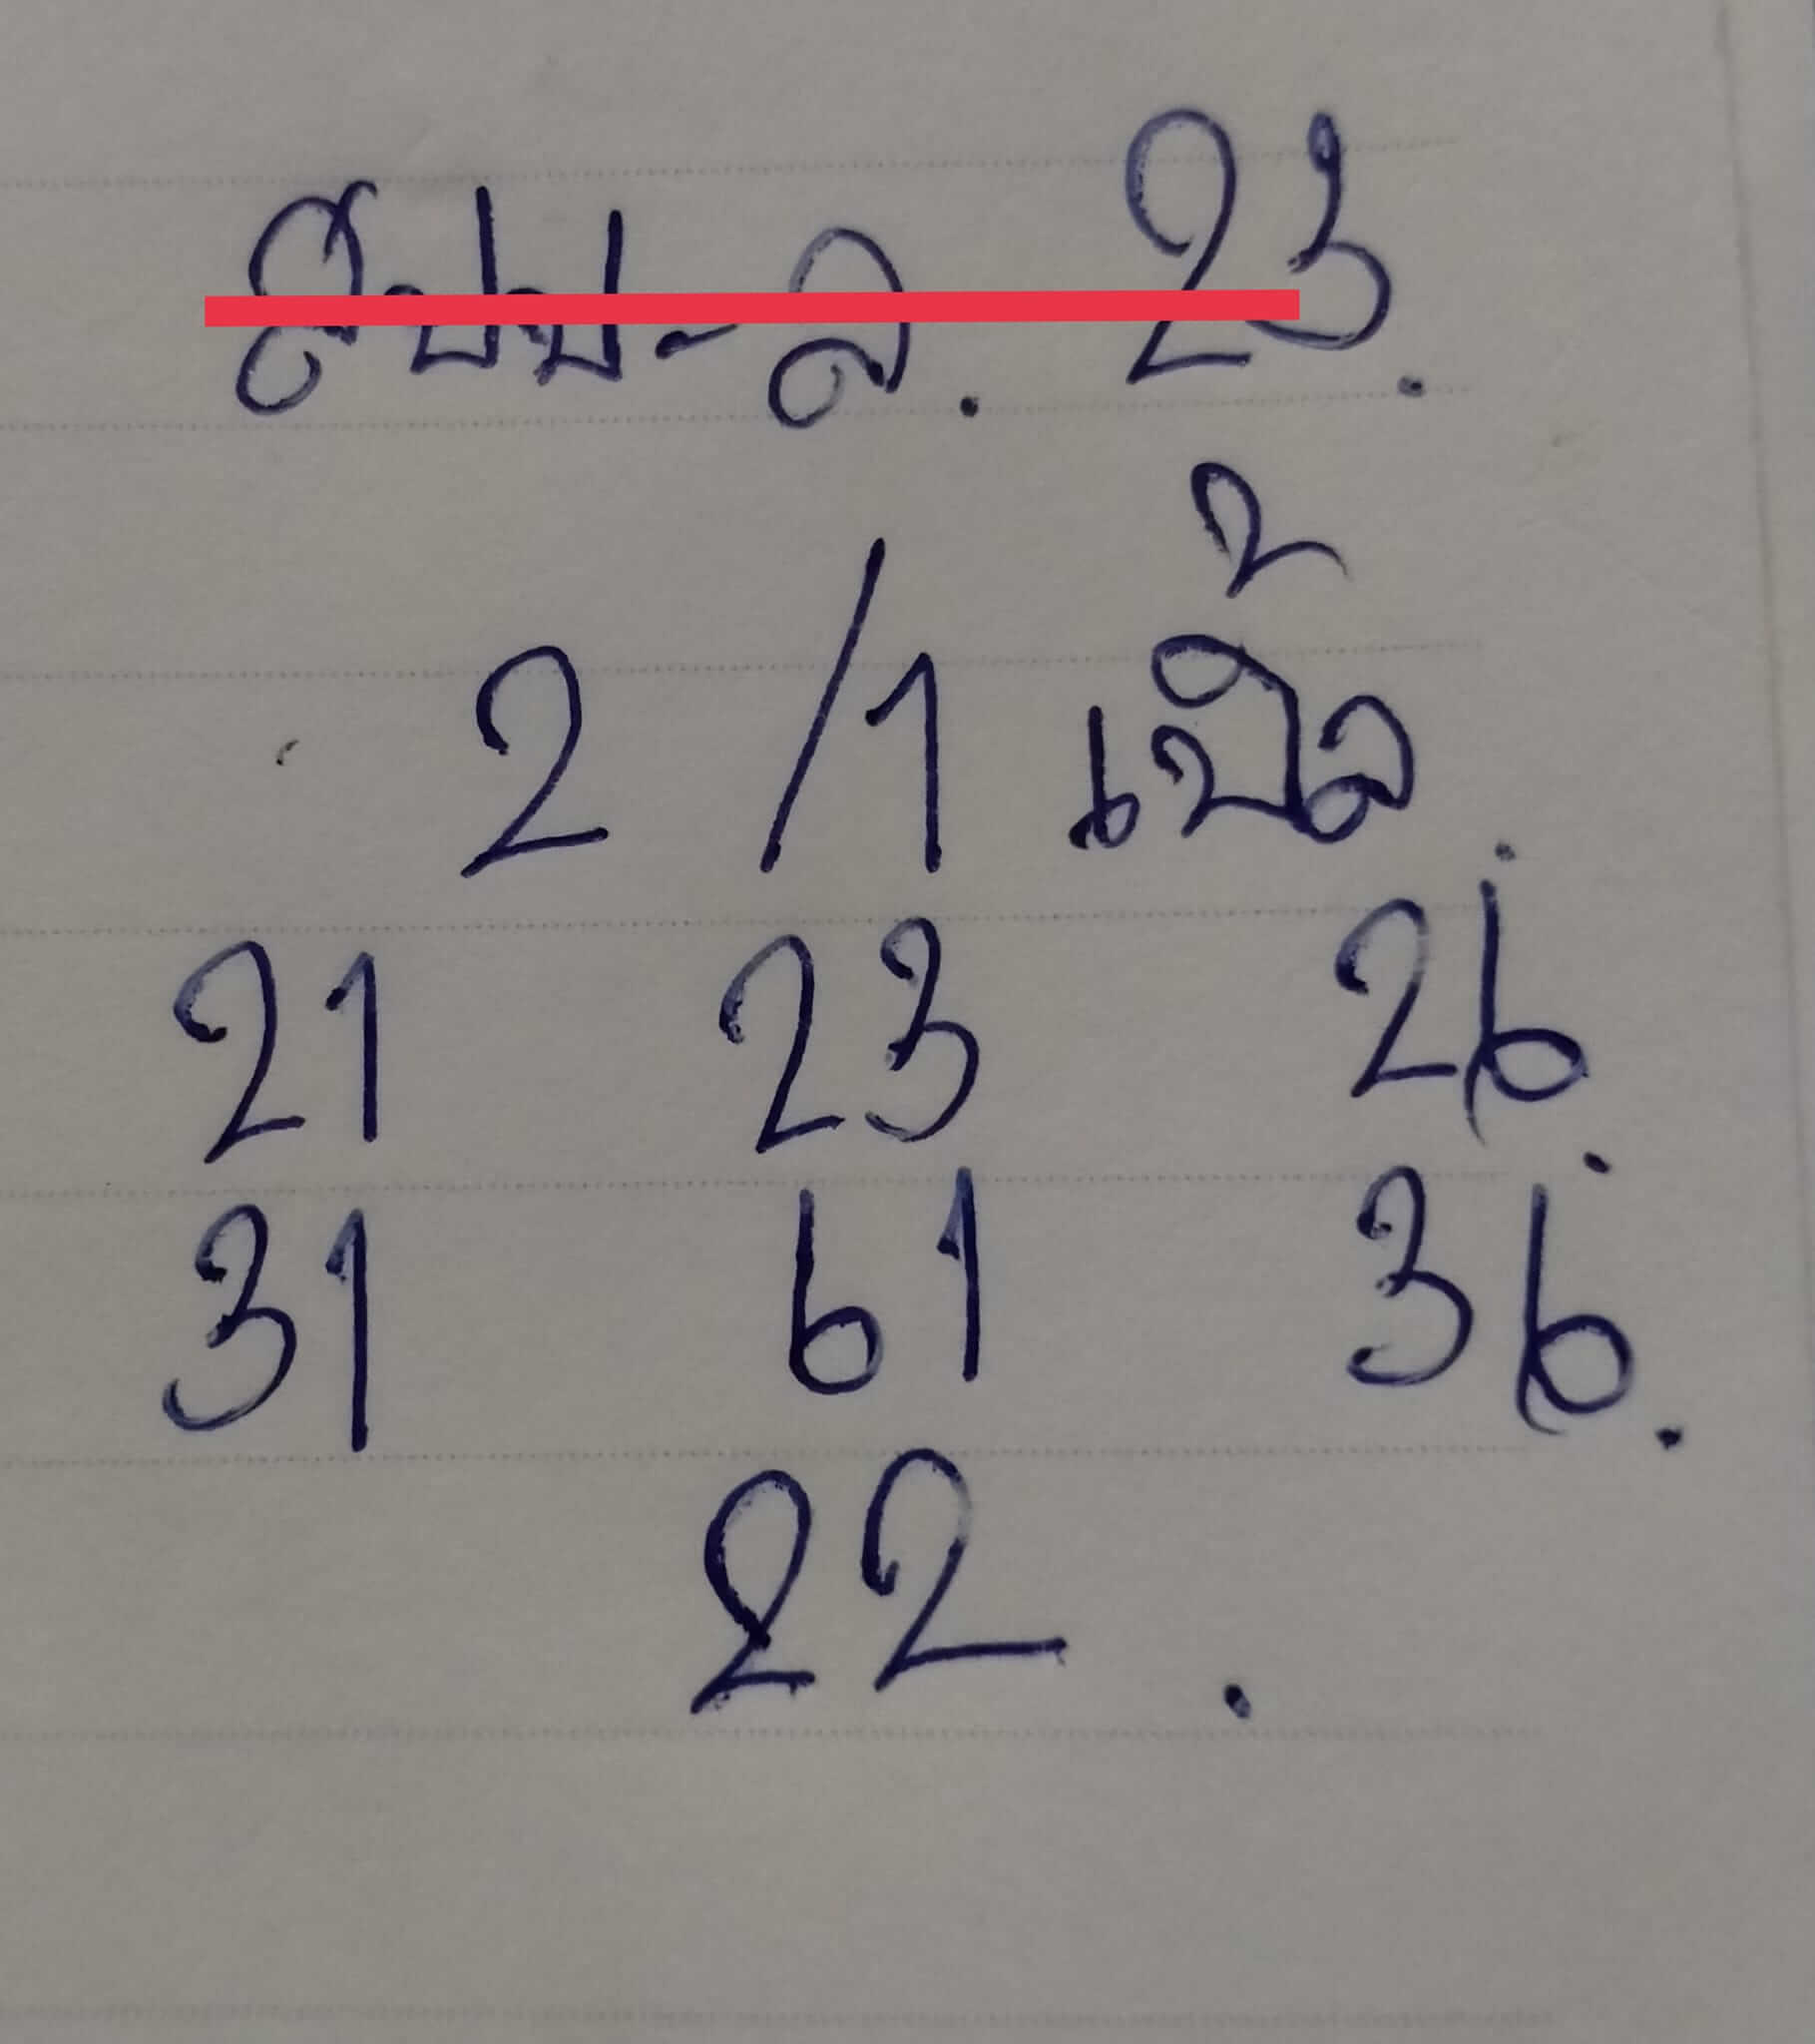 สปป-ล. 23.
2 /1 เบิ้ล.
21 23 26.
31 61 36.
22.